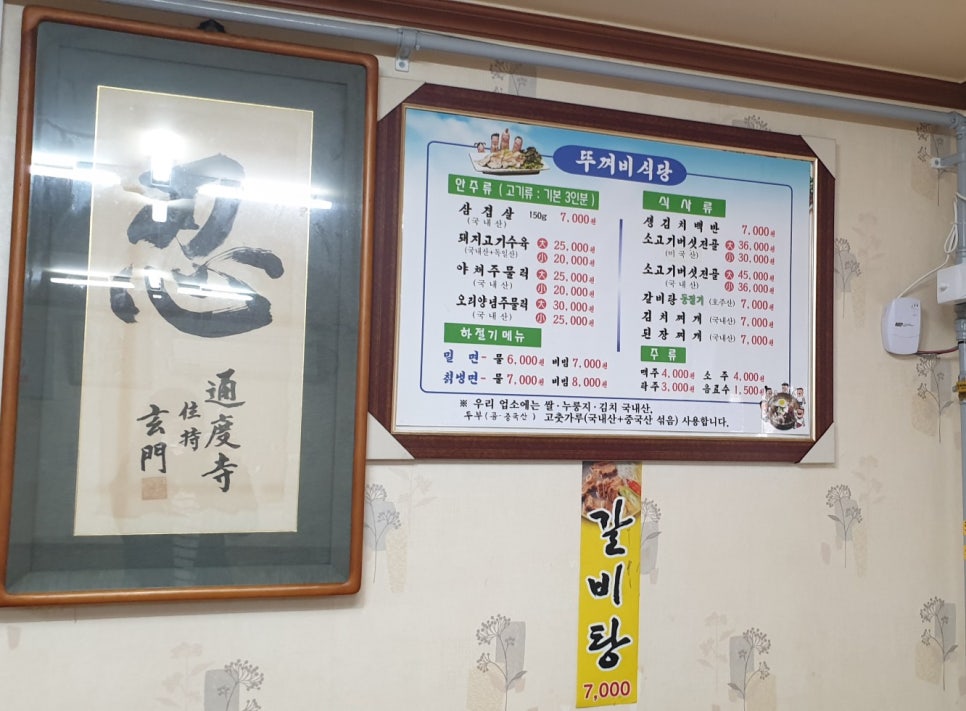 忍
通度寺
住持
玄門
뚜꺼비식당
안주류 (고기류 : 기본 3인분)
삼겹살 150g 7,000원
(국내산)
돼지고기수육 大 25,000원
(국내산+독일산) 小 20,000원
야채주물럭 大 25,000원
(국내산) 小 20,000원
오리양념주물럭 大 30,000원
(국내산) 小 25,000원
하절기메뉴
밀 면 - 물 6,000원 비빔 7,000원
칡냉면 - 물 7,000원 비빔 8,000원
식사류
생김치백반 7,000원
소고기버섯전골 大 36,000원
(미국산) 小 30,000원
소고기버섯전골 大 45,000원
(국내산) 小 36,000원
갈비탕 (호주산) 7,000원
김치찌개 (국내산) 7,000원
된장찌개 (국내산) 7,000원
주류
맥주 4,000원 소주 4,000원
탁주 3,000원 음료수 1,500원
※ 우리 업소에는 쌀·누룽지·김치 국내산,
두부(콩-중국산) 고춧가루(국내산+중국산 섞음) 사용합니다.
갈비탕
7,000